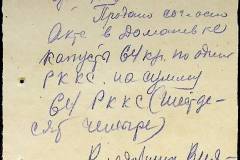 Продано согласно
Акта в Доманевке
капусты 64 кгр. по одной
РККС. на сумму
64 РККС (шестьде-
сят четыре)